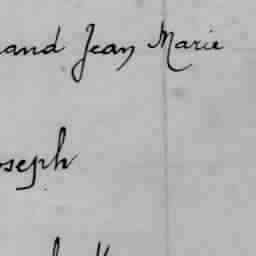 and Jean Marie
oseph